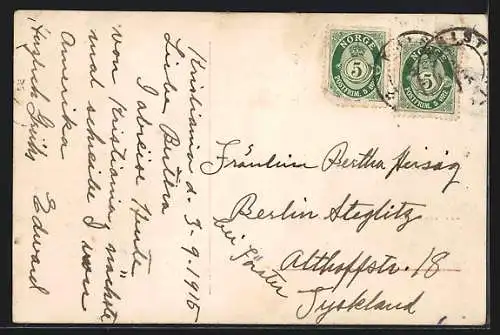 Kristiania d. 3-9.1915
Liebe Bertha
I abreise Heute
von Kristiania nächste
mal schreibe I von
Amerika
Herzlich Grüße
Edward
NORGE
5
POSTFRIM. 5 ØRE
NORGE
5
POSTFRIM. 5 ØRE
Fräulein Bertha Herzog
Berlin Steglitz
bei Förster
Althoffstr. 18
Tyskland